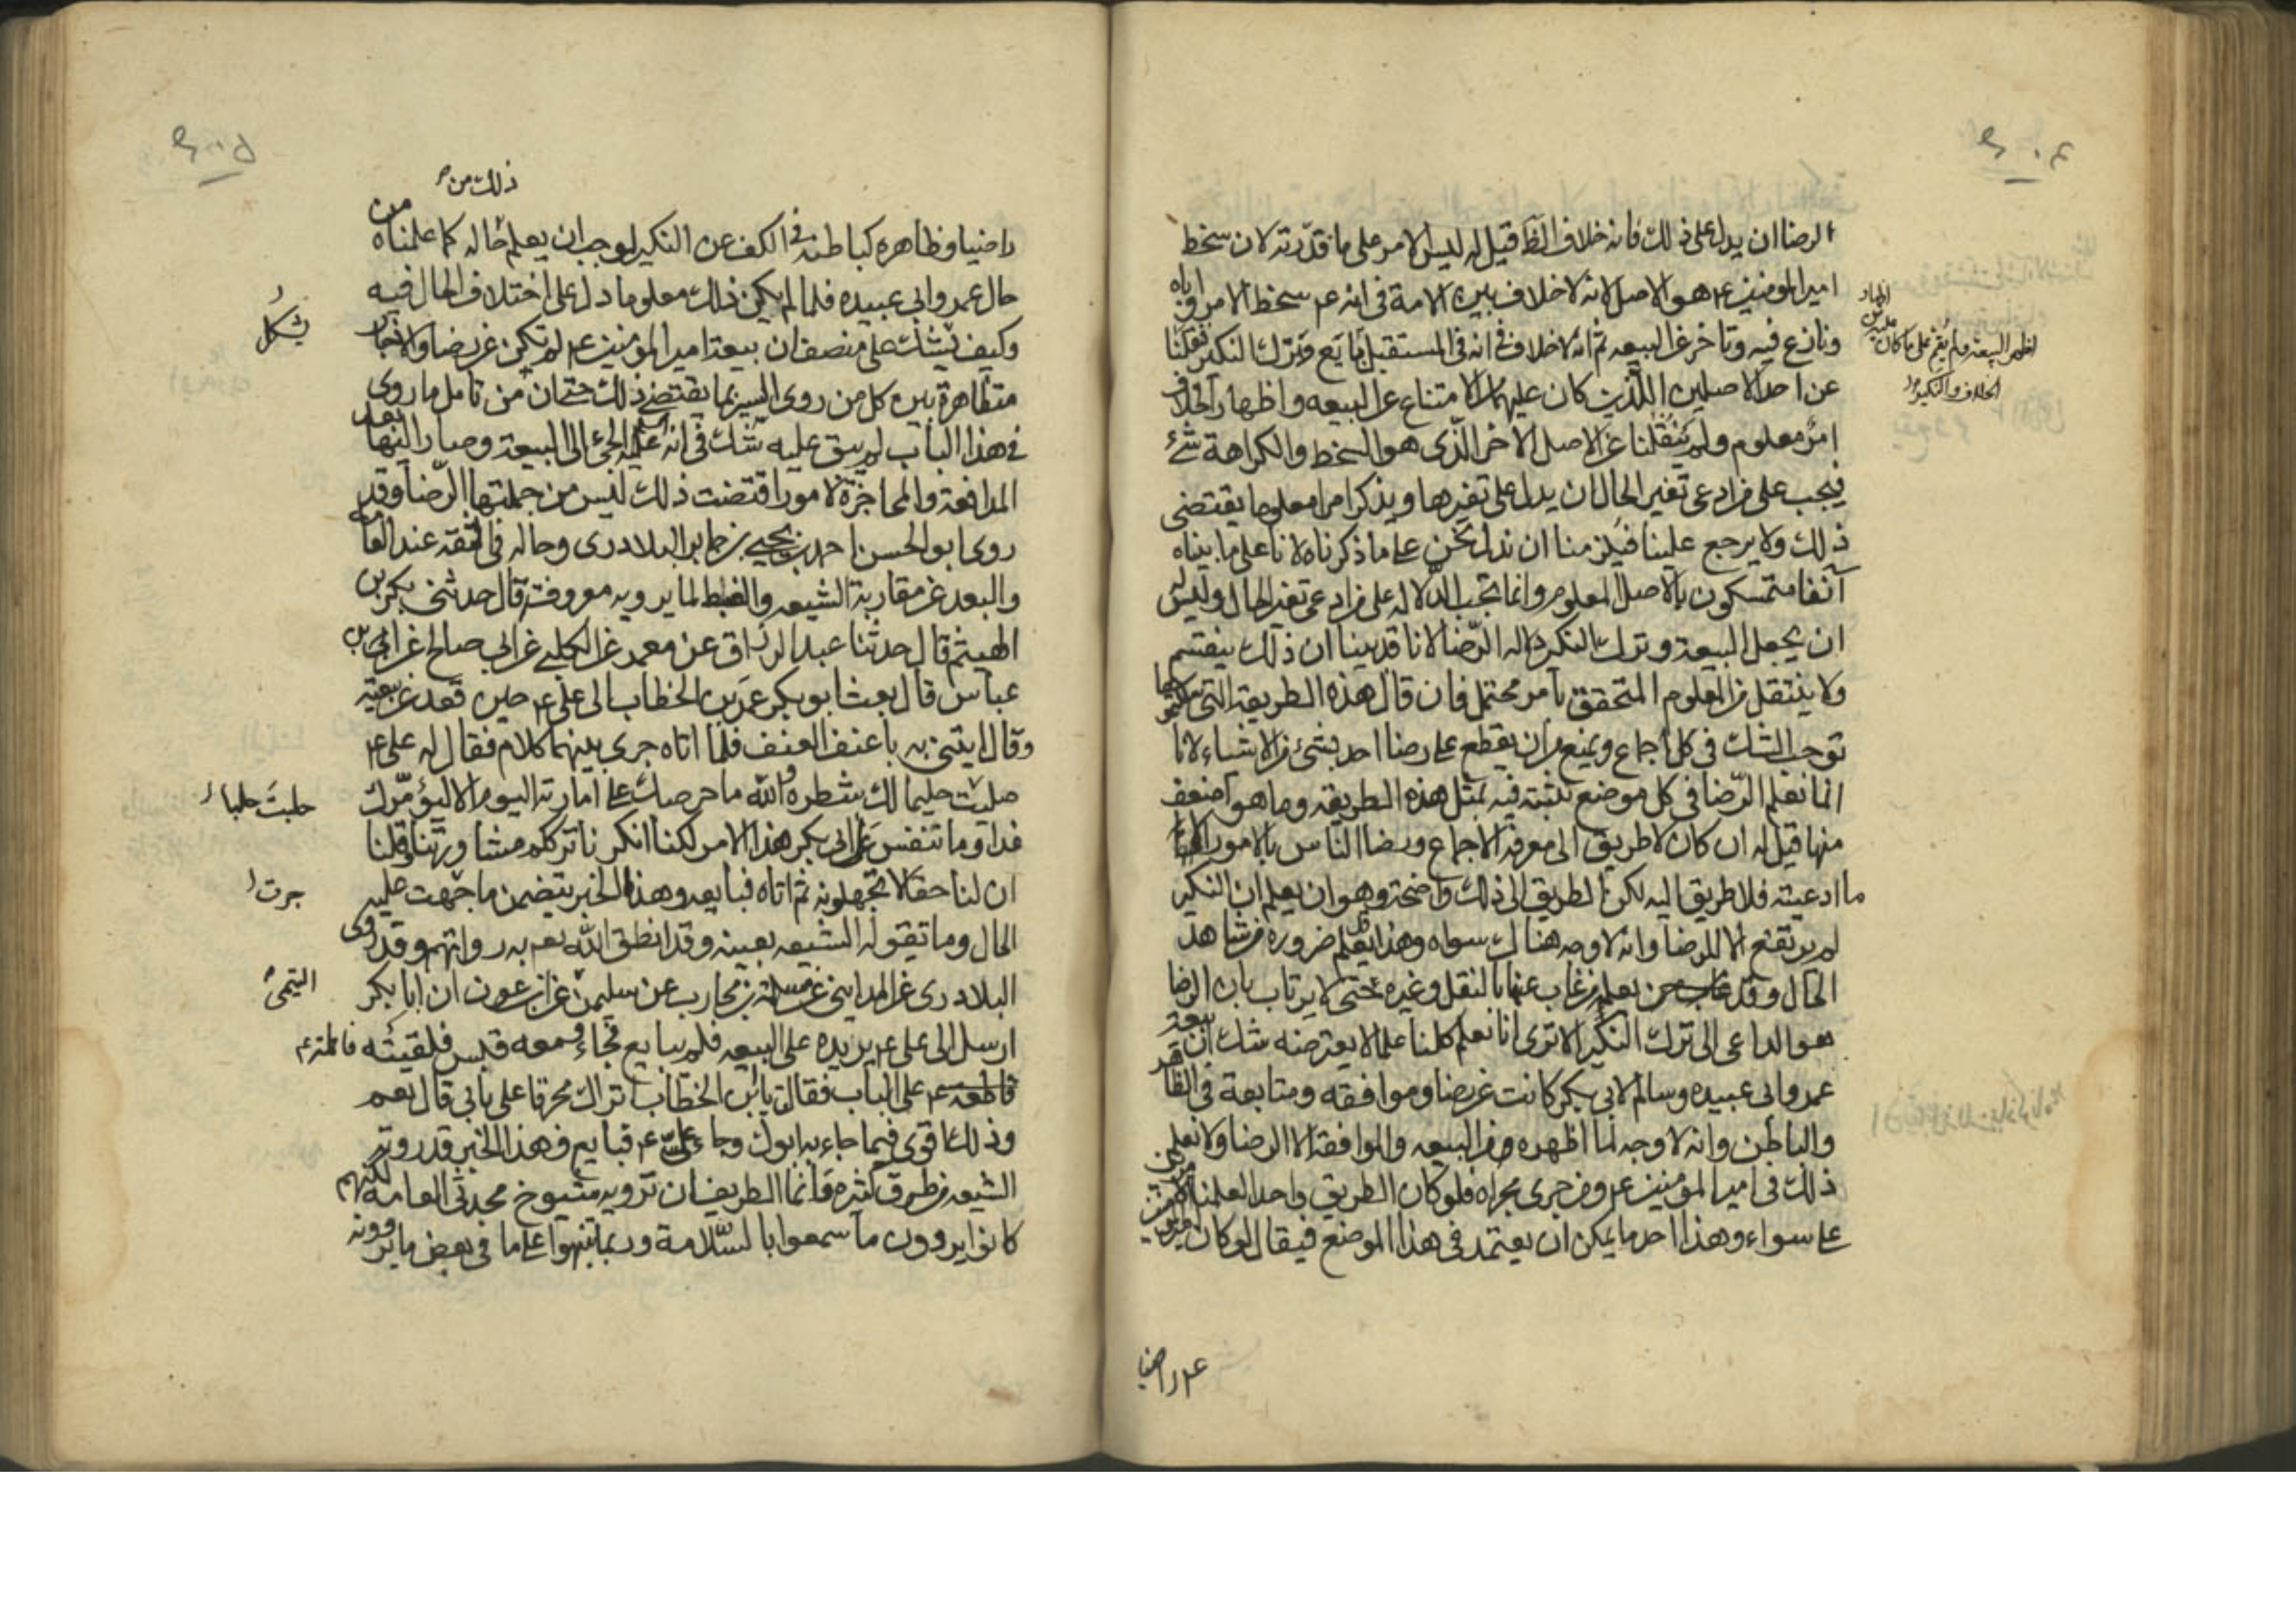 الرضا ان يدل على ذلك فانه خلاف الظ قيل له ليس الامر على ما قدّرته لان سخط
امير المومنين ع هو الاصل لانه لا خلاف بين الامة فى انه ع سخط الامر واباه
ونازع فيه وتاخر عن البيعه ثم انه لا خلاف فى انه فى المستقبل بايع وترك النكير فنقلنا
عن احد الاصلين اللذين كان عليهما الامتناع عن البيعه واظهار الخلاف
امر معلوم ولم ينقلنا عن الاصل الاخر الذى هو السخط والكراهة شئ
فيجب على من ادعى تغير الحال ان يدل على تغيرها ويذكر امرا معلوما يقتضى
ذلك ولا يرجع علينا فيلزمنا ان ندل نحن على ما ذكرناه لانا على ما بيناه
آنفا متمسكون بالاصل المعلوم وانما تجب الدلاله على من ادعى تغير الحال وليس له
ان يجعل البيعة وترك النكير دالة الرضا لانا قد بينا ان ذلك ينقسم
ولا ينتقل من المعلوم المتحقق بامر محتمل فان قال هذه الطريقة التى سلكتموها
توجب الشك فى كل اجماع ويمنع من ان يقطع على رضا احد بشئ من الاشياء لانا
انما نعلم الرضا فى كل موضع نثبته فيه بمثل هذه الطريقه وما هو اضعف
منها قيل له ان كان لا طريق الى معرفة الاجماع ورضا الناس بالامور الا هذا
ما ادعيته فلا طريق اليه لكن الطريق الى ذلك واضحة وهو ان يعلم ان النكير
لم يرتفع الا للرضا وانه لا وجه هناك سواه وهذا يعلم ضرورة من شاهد
الحال وقد يعلم من غاب عنها بالنقل وغيره حتى لا يرتاب بان الرضا
هو الداعى الى ترك النكير الا ترى انا نعلم كلنا علما لا يعترضه شك ان بيعة
عمر وابى عبيده وسالم لابى بكر كانت عن رضا وموافقه ومتابعة فى الظاهر
والباطن وانه لا وجه لما اظهره من البيعه والموافقة الا الرضا ولا نعلم
ذلك فى امير المومنين ع ومن جرى مجراه فلو كان الطريق واحدا لعلمنا الامرين
على سواء وهذا احد ما يمكن ان يعتمد فى هذا الموضع فيقال لو كان امير المومنين
ع راضيا
اظهر البيعة ولم يقم على ما كان عليه من اظهار
الخلاف والنكير
ذلك من
راضيا وظاهره كباطنه فى الكف عن النكير لوجب ان يعلم حاله كما علمناه من
حال عمر وابى عبيده فلما لم يكن ذلك معلوما دل على اختلاف الحال فيه
وكيف يشك على منصف ان بيعة امير المومنين ع لم تكن عن رضا والاخبار
يشكل
متظاهرة بين كل من روى السير بما يقتضى ذلك حتى ان من تامل ما روى
فى هذا الباب لم يبق عليه شك فى انه ع الجئ الى البيعة وصار اليها بعد
المدافعة والمحاجزة لامور اقتضت ذلك ليس من جملتها الرضا وقد
روى ابو الحسن احمد بن يحيى بن جابر البلادرى وحاله فى الثقة عند العامه
والبعد عن مقاربة الشيعه والضبط لما يرويه معروفة قال حدثنى بكر بن
الهيثم قال حدثنا عبد الرزاق عن معمر عن الكلبى عن ابى صالح عن ابن
عباس قال بعث ابو بكر عمر بن الخطاب الى على ع حين قعد عن بيعته
وقال ايتنى به باعنف العنف فلما اتاه جرى بينهما كلام فقال له على ع
حلبت حليما لك شطره والله ما حرصك على امارته اليوم الا ليؤمّرك
حلبت حلبا
غدا وما تنفس على ابى بكر هذا الامر لكنا انكرنا ترككم مشاورتنا وقلنا
ان لنا حقا لا تجهلونه ثم اتاه فبايعه وهذا الخبر يتضمن ما جرت عليه
جرت
الحال وما تقوله الشيعه بعينه وقد انطق الله به رواتهم وقد روى
البلادرى عن المداينى عن مسلمة بن محارب عن سليمن عن ابن عون ان ابا بكر
التيمى
ارسل الى على ع يريده على البيعه فلم يبايع فجاء ومعه قبس فلقيته
فاطمة ع
على الباب فقالت يا بن الخطاب اتراك محرقا على بابى قال نعم
وذلك اقوى فيما جاء به ابوك وجاء على ع فبايع وهذا الخبر قد روته
الشيعه من طرق كثيره وانما الطريف ان ترويه شيوخ محدثى العامه لكنهم
كانوا يروون ما سمعوا بالسلامة وربما تنبهوا على ما فى بعض ما يروونه